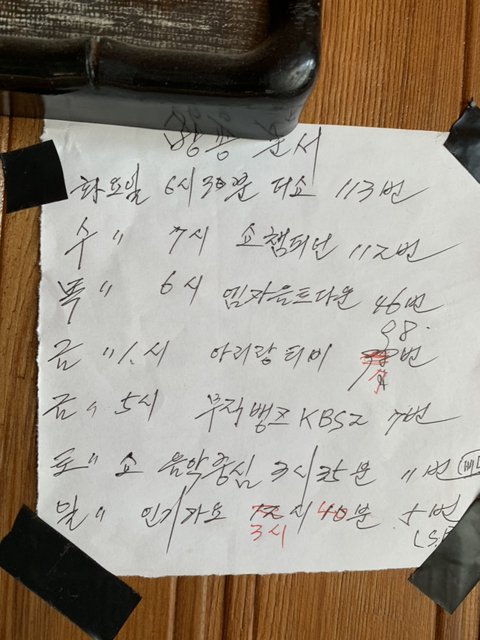 방송 순서
화요일 6시 30분 더쇼 113번
수 〃 7시 쇼챔피언 112번
목 〃 6시 엠카운트다운 46번
금 〃 1시 아리랑티비 98번
금 〃 5시 뮤직뱅크 KBS2 7번
토 〃 쇼 음악중심 3시 35분 11번
일 〃 인기가요 3시 40분 5번